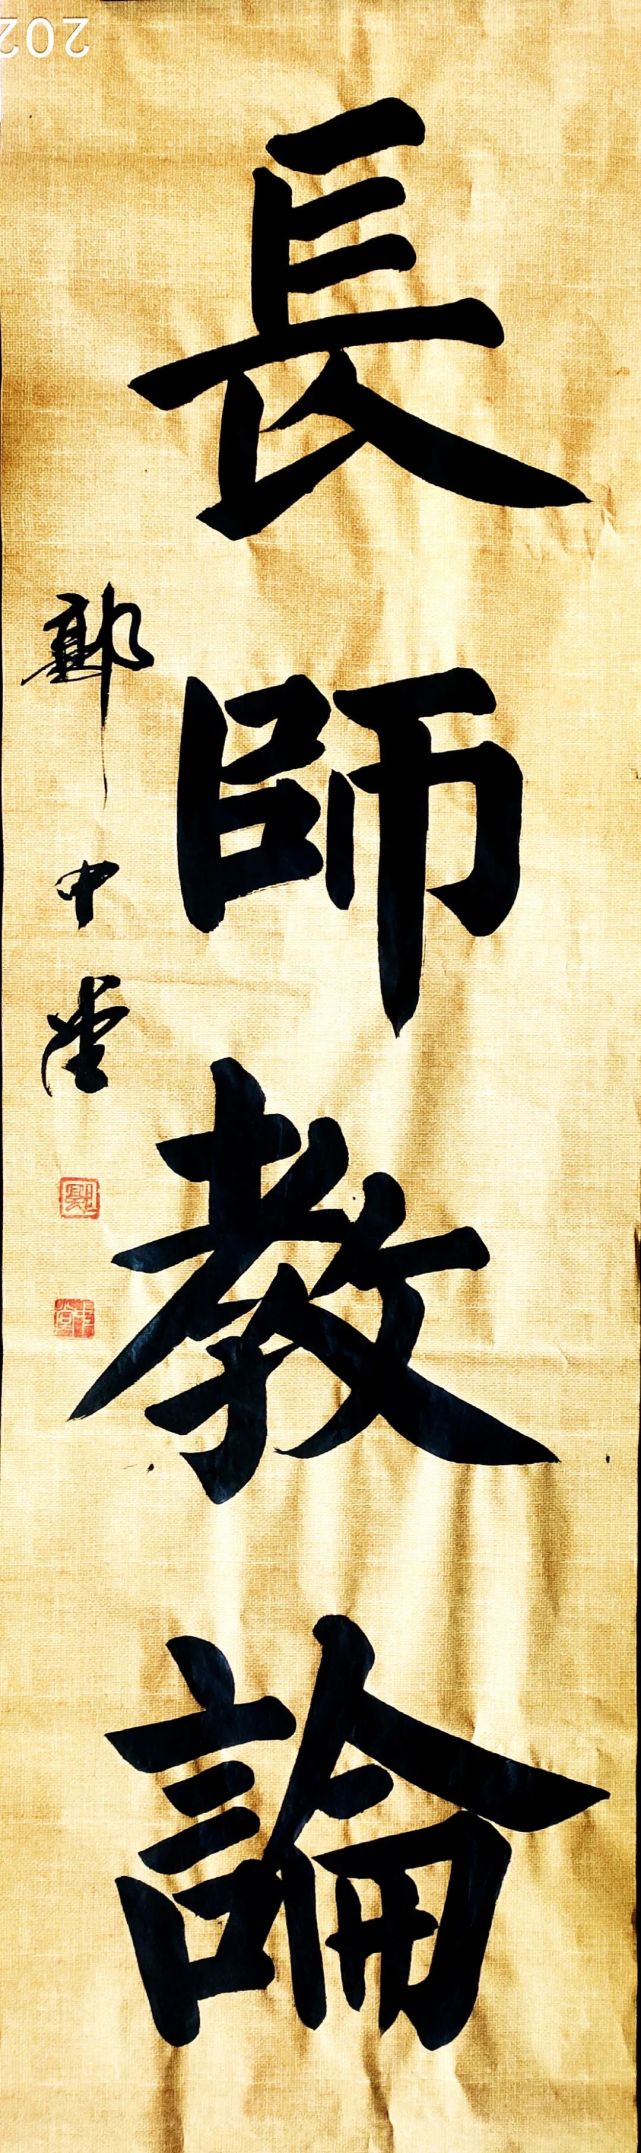 長師教論
鄭中堂
202